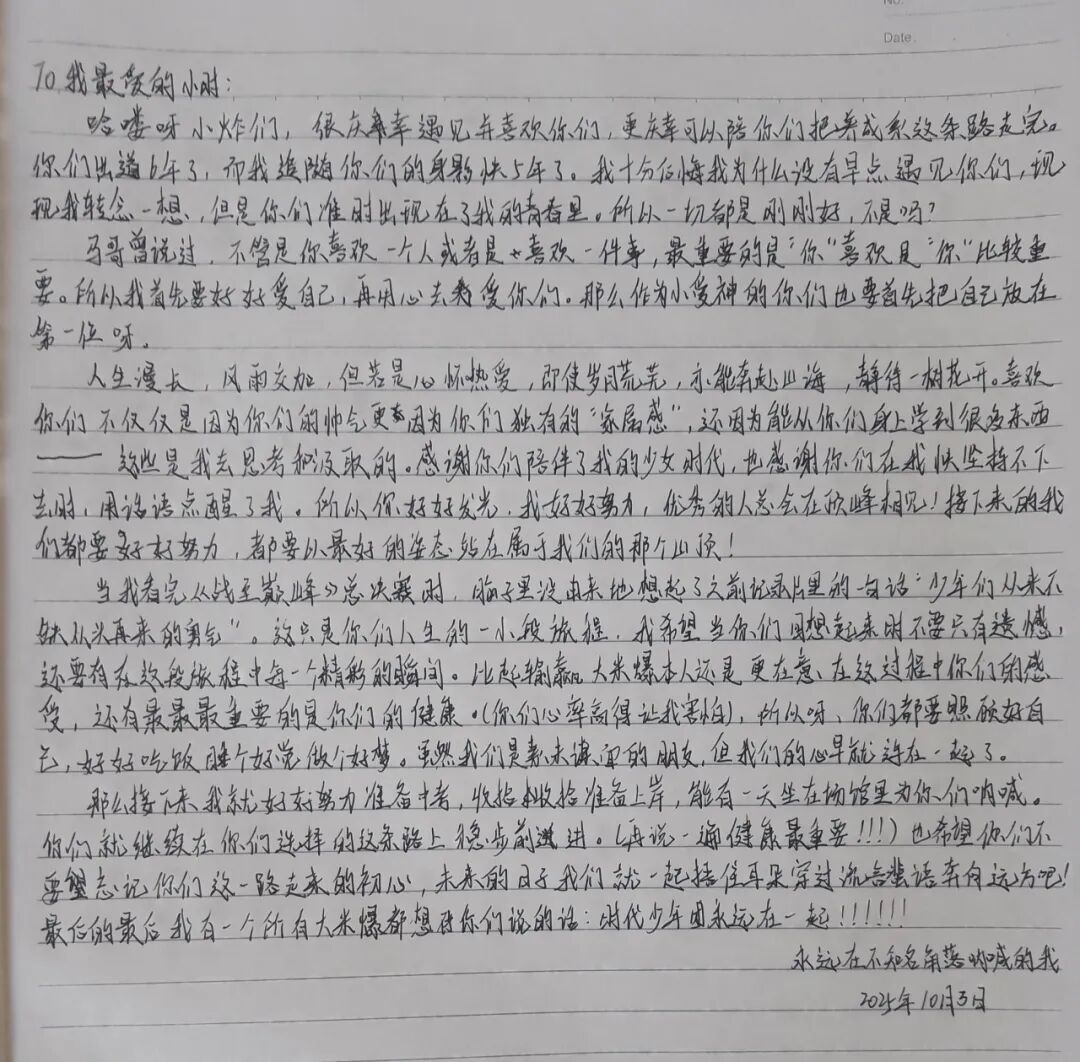 No.
Date.
To 我最爱的小时：
哈喽呀小炸们，很庆幸遇见并喜欢你们，更庆幸可以陪你们把养成系这条路走完。
你们出道6年了，而我追随你们的身影快5年了。我十分后悔我为什么没有早点遇见你们，现
现我转念一想，但是你们准时出现在了我的青春里。所以一切都是刚刚好，不是吗？
马哥曾说过，不管是你喜欢一个人或者是喜欢一件事，最重要的是“你”喜欢是“你”比较重
要。所以我首先要好好爱自己，再用心去爱你们。那么作为小爱神的你们也要首先把自己放在
第一位呀。
人生漫长，风雨交加，但若是心怀热爱，即使岁月荒芜，亦能奔赴山海，静待一树花开。喜欢
你们不仅仅是因为你们的帅气更因为你们独有的“家属感”，还因为能从你们身上学到很多东西
——这些是我去思考和汲取的。感谢你们陪伴了我的少女时代，也感谢你们在我快坚持不下
去时，用话语点醒了我。所以你好好发光，我好好努力，优秀的人总会在顶峰相见！接下来的我
们都要好好努力，都要以最好的姿态站在属于我们的那个山顶！
当我看完《战至巅峰》总决赛时，脑子里没由来地想起了之前记录片里的一句话“少年们从来不
缺从头再来的勇气”。这只是你们人生的一小段旅程，我希望当你们回想起来时不要只有遗憾，
还要有在这段旅程中每一个精彩的瞬间。比起输赢大米爆本人还是更在意在这过程中你们的感
受，还有最最最重要的是你们的健康。（你们心率高得让我害怕），所以呀、你们都要照顾好自
己，好好吃饭睡个好觉做个好梦。虽然我们是素未谋面的朋友，但我们的心早就连在一起了。
那么接下来我就好好努力准备中考，收拾收拾准备上岸，能有一天坐在场馆里为你们呐喊。
你们就继续在你们选择的这条路上稳步前进。（再说一遍健康最重要！！！）也希望你们不
要忘记你们这一路走来的初心，未来的日子我们就一起捂住耳朵穿过流言蜚语奔向远方吧！
最后的最后我有一个所有大米爆都想对你们说的话：时代少年团永远在一起！！！！！！
永远在不知名角落呐喊的我
2025年10月3日